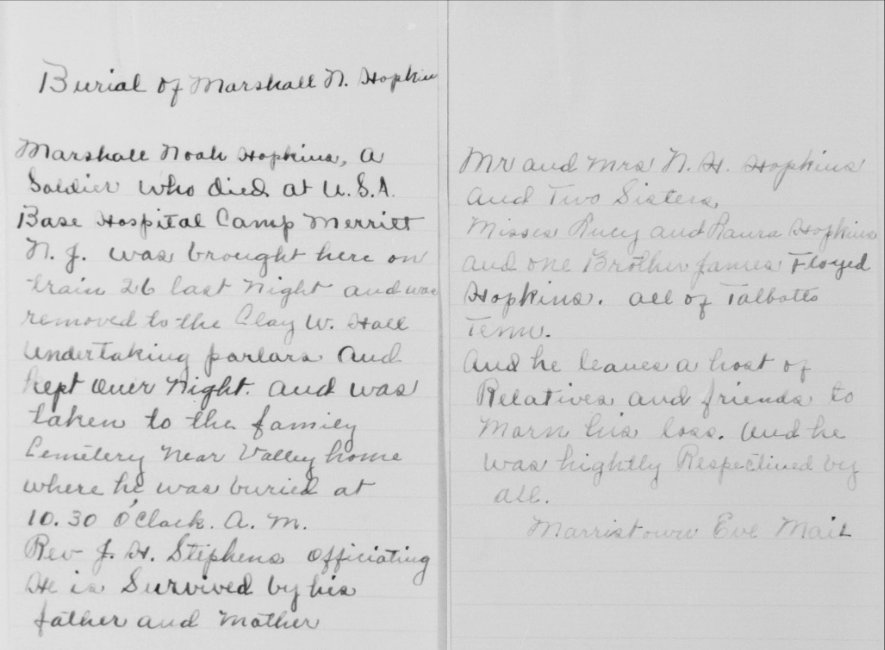 Burial of Marshall N. Hopkins
Marshall Noah Hopkins, a
Soldier who died at U.S.A.
Base Hospital Camp Merritt
N. J. was brought here on
train 26 last Night and was
removed to the Clay W. Hall
Undertaking parlars and
kept over Night. and was
taken to the family
Cemetery Near Valley home
where he was buried at
10.30 O'Clack. A. M.
Rev J. H. Stephens officiating
He is Survived by his
father and Mother
Mr and Mrs N. H. Hopkins
and Two Sisters,
Misses Lucy and Laura Hopkins
and one Brother James Floyed
Hopkins. all of Talbotts
Tenn.
And he leaves a host of
Relatives and friends to
Marn his loss. And he
was hightly Respectived by
all.
Marristown Eve Mail